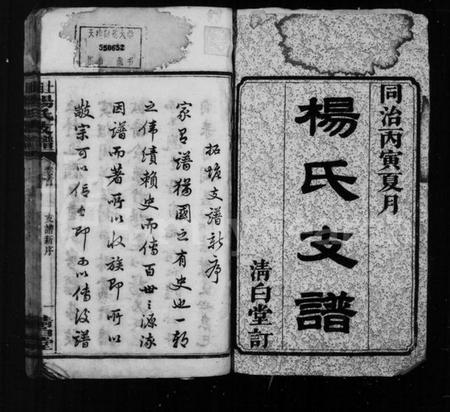 同治丙寅夏月
楊氏支譜
清白堂訂
支譜新序
家乘譜猶國之有史也一朝
之偉績賴史而傳百世之源流
因譜而著所以收族即所以
敬宗可以信今即可以傳後譜
楊氏支譜
支譜新序
清白堂
350652